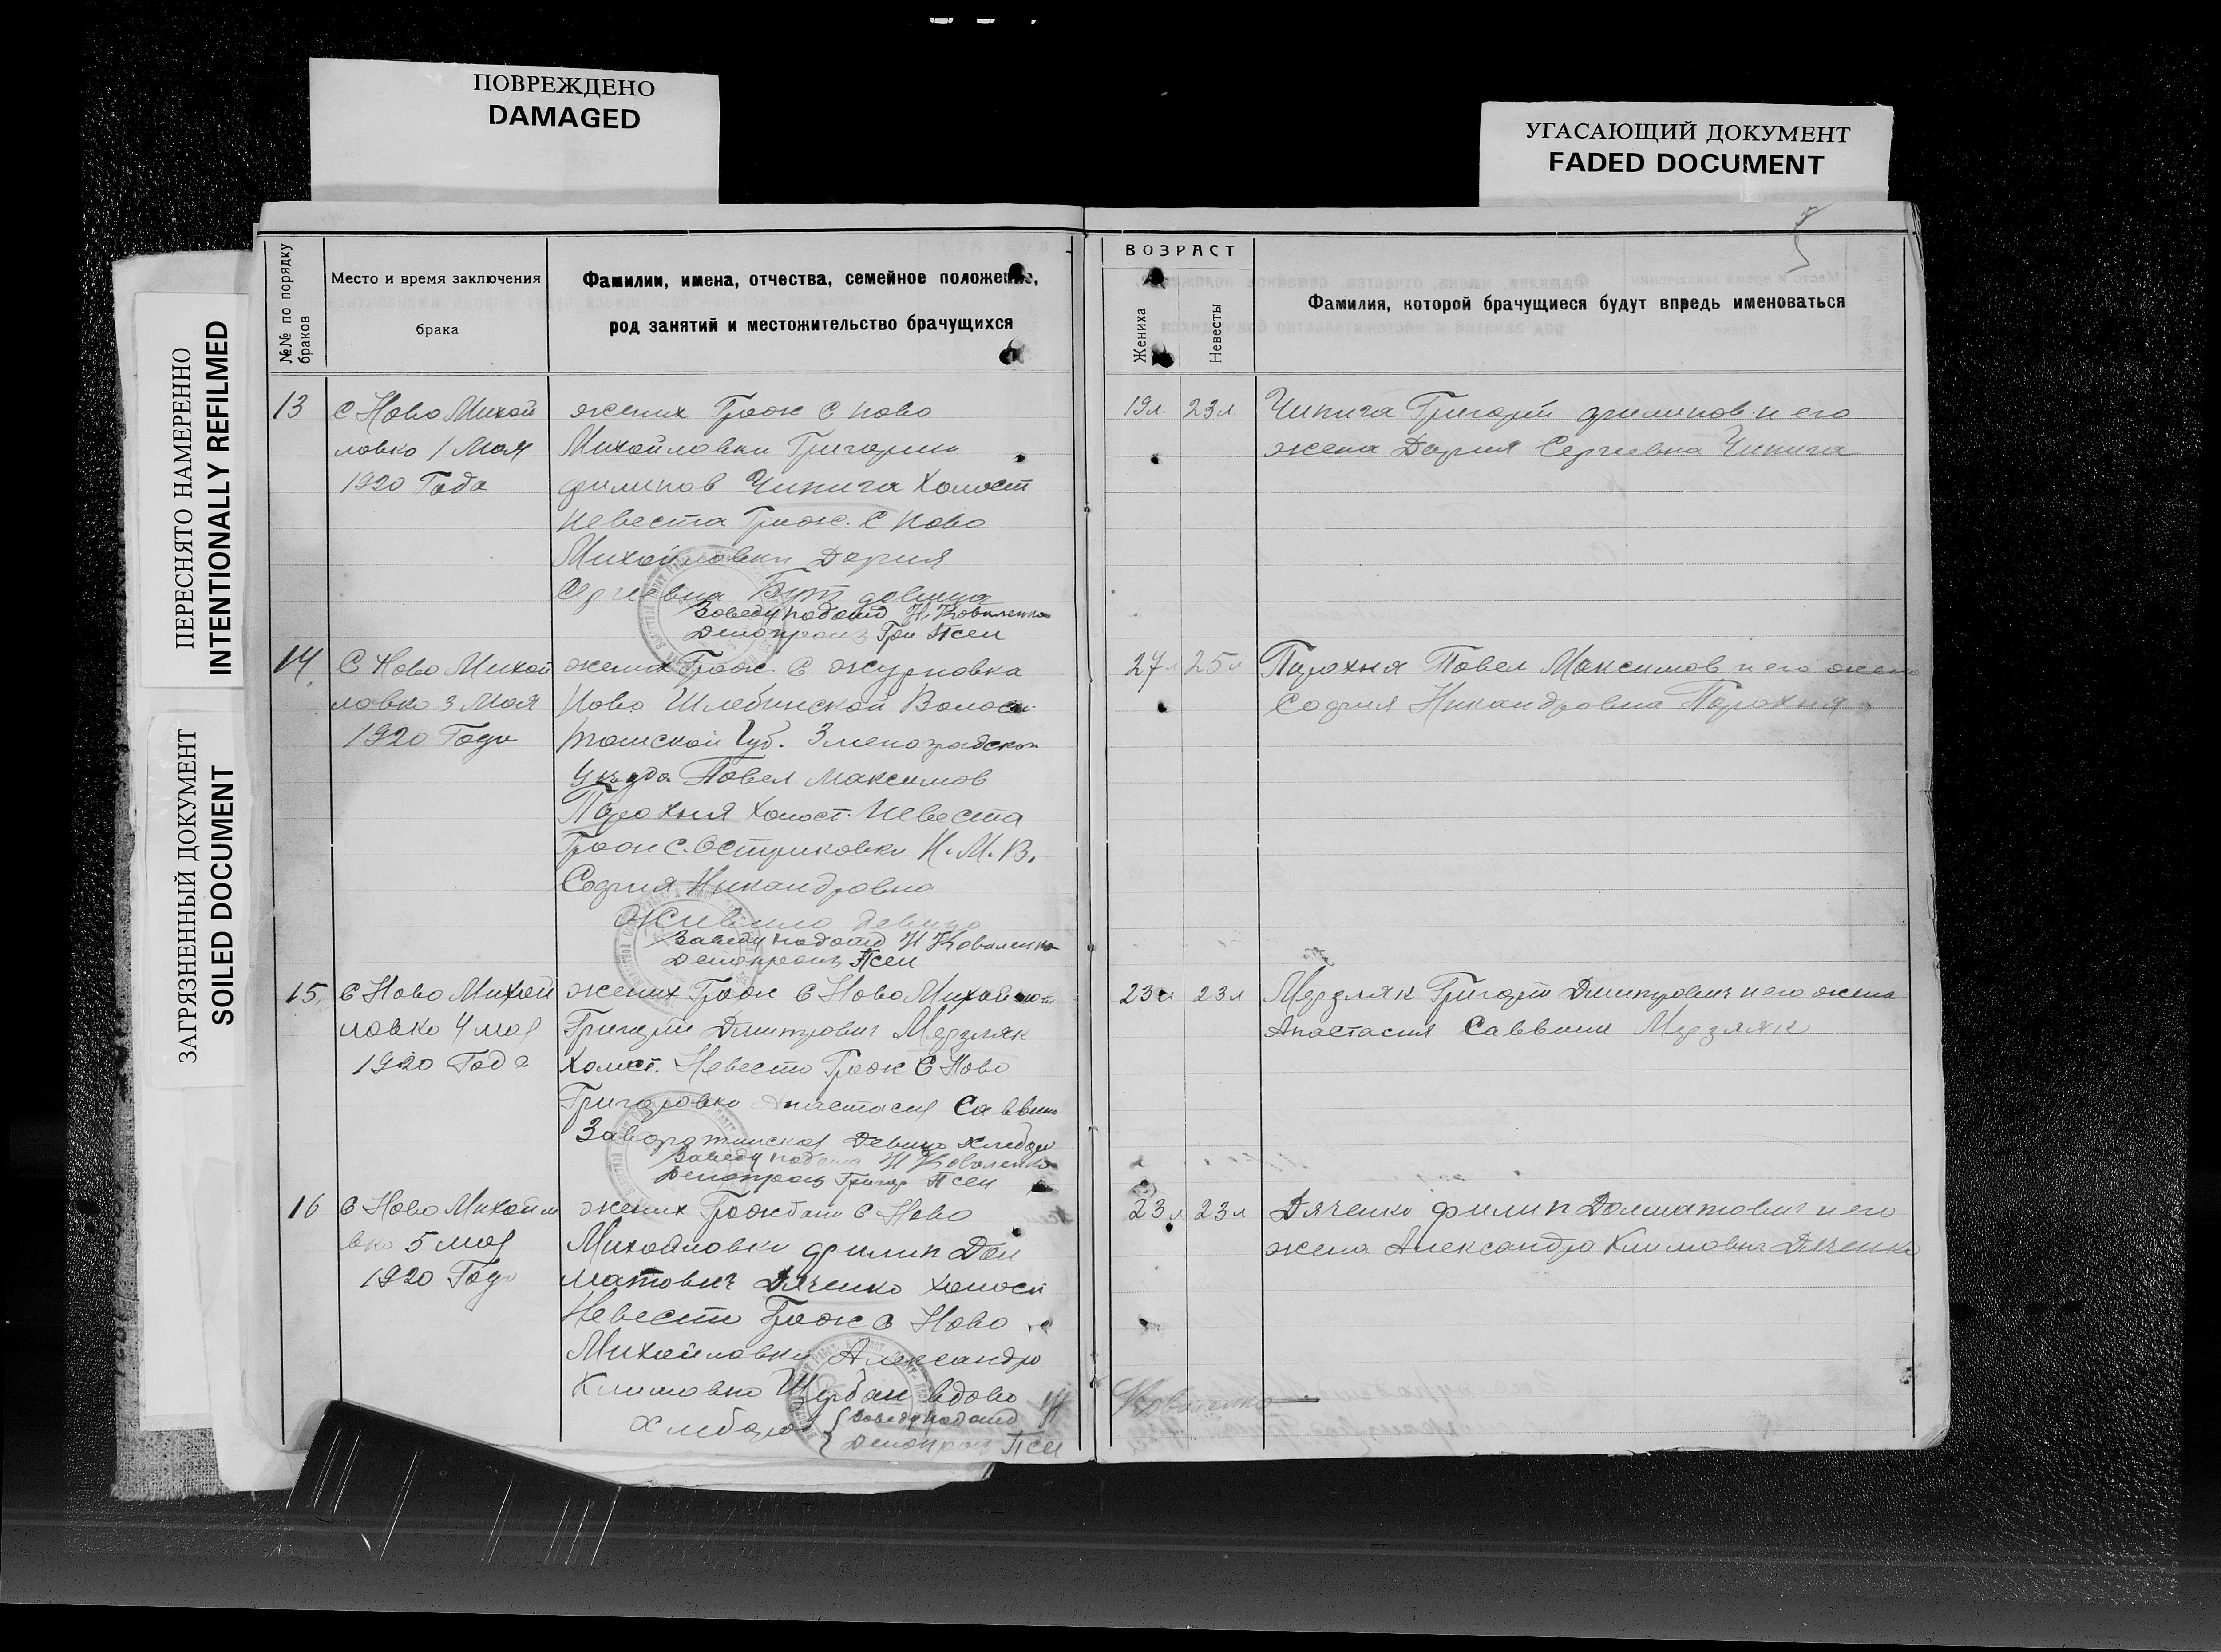 ПОВРЕЖДЕНО
DAMAGED
УГАСАЮЩИЙ ДОКУМЕНТ
FADED DOCUMENT
ПЕРЕСНЯТО НАМЕРЕННО
INTENTIONALLY REFILMED
ЗАГРЯЗНЕННЫЙ ДОКУМЕНТ
SOILED DOCUMENT
№№ по порядку
браков
Место и время заключения
брака
Фамилии, имена, отчества, семейное положение,
род занятий и местожительство брачущихся
ВОЗРАСТ
Жениха
Невесты
Фамилия, которой брачущиеся будут впредь именоваться
13
С Ново Михай
ловка 1 Мая
1920 Года
жених Граж С Ново
Михайловки Григорий
филипов Чипига Холост
Невеста Граж. С Ново
Михайловки Дария
Сергеевна
Заведу подотд Н. Коваленко
Делопроиз Гри Псел
19л. 23л.
Чипига Григорий филипов и его
жена Дария Сергеевна Чипига
14.
С Ново Михай
ловка 3 Мая
1920 Года
жених Граж С журновка
Ново
Губ.
Уезда Павел Максимов
Парохня Холост. Невеста
Граж С. Остриковки Н. М. В.
София Никандровна
девица
Заведу подотд Н Коваленко
Делопроиз Псел
27л 25л
Парохня Павел Максимов и его жена
София Никандровна Парохня
15.
С Ново Михай
ловка 4 мая
1920 Года
жених Граж С Ново
Григорий Дмитрович Мерзляк
Холост. Невеста Граж С Ново
Григоровка Анастасия Саввина
девица хлебороб
Заведу подотд Н Коваленко
Делопроиз Григор Псел
23л 23л
Мерзляк Григорий Дмитрович и его жена
Анастасия Саввина Мерзляк
16
С Ново Михайло
вка 5 мая
1920 Года
жених Граждан С Ново
Михайловки филип Дол
матович Дяченко холост
Невеста Граж С Ново
Михайловки Александра
Климовна Щербак вдова
Хлебороб Заведу подотд Н Коваленко
Делопроиз Псел
23л 23л
Дяченко филип Долматович и его
жена Александра Климовна Дяченко